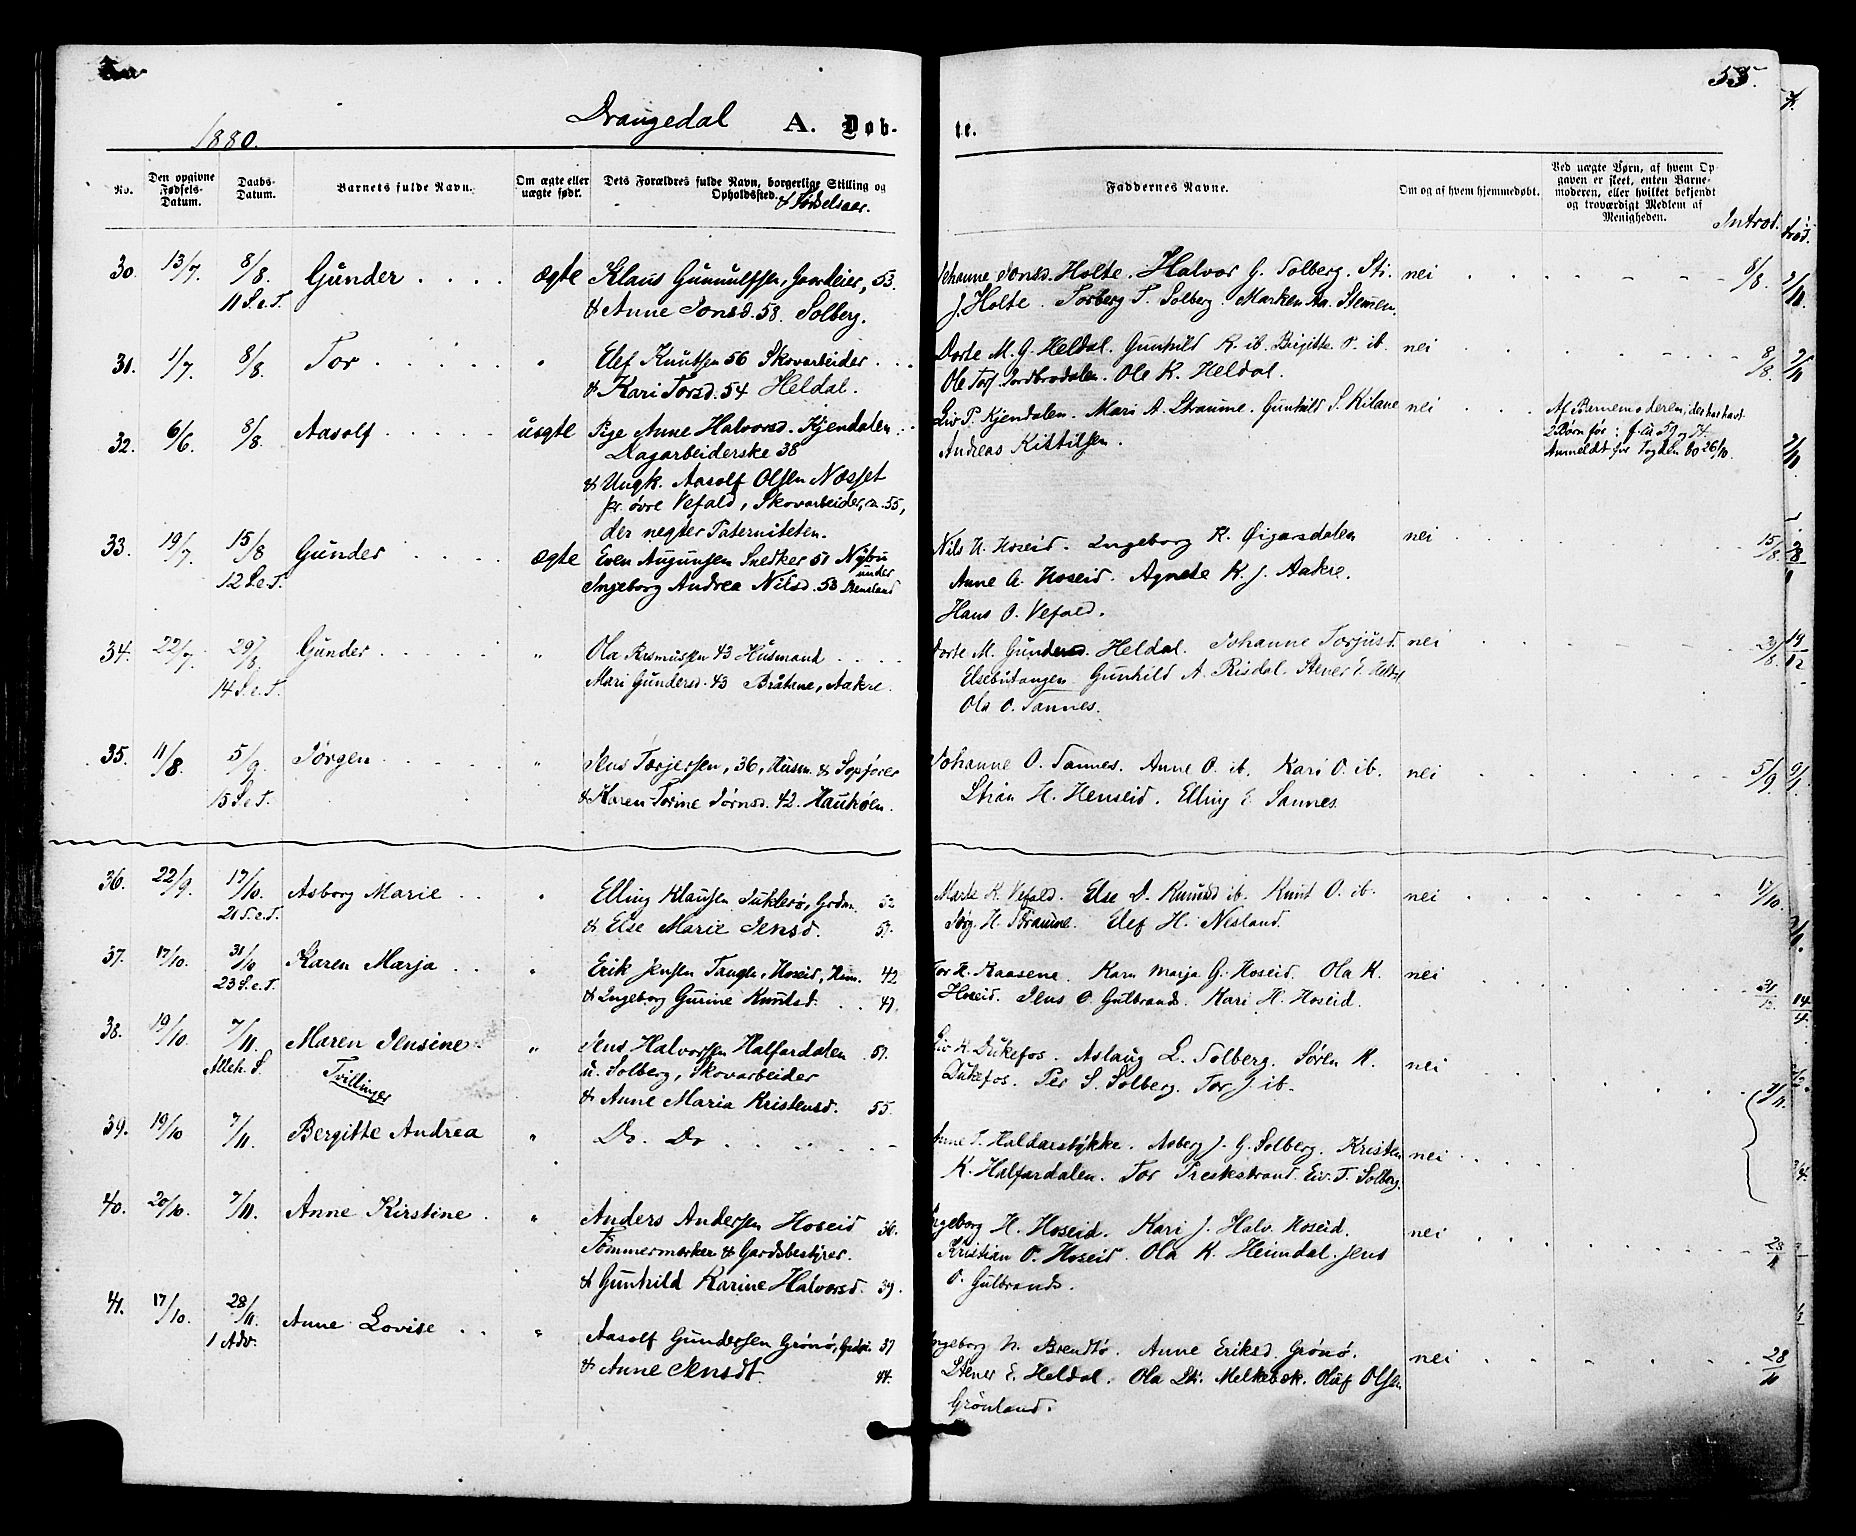 55.
Drangedal A. Døb- te.
1880.
No. Den opgivne Fødsels-Datum. Daabs-Datum. Barnets fulde Navn. Om ægte eller uægte født. Dets Forældres fulde Navn, borgerlige Stilling og Opholdssted. & Fødselsaar.
Faddernes Navne. Om og af hvem hjemmedøbt. Ved uægte Børn, af hvem Opgaven er skeet, enten Barnemoderen, eller hvilket bekjendt og troværdigt Medlem af Menigheden. Introd.
30. 13/7. 8/8. Gunder ægte Klaus Gunnulfsen, Gaardeier, 53. Johanne Jonsd. Holte. Halvor G. Solberg. nei 8/8.
11 S. e. T. & Anne Jonsd. 58. Solberg. J. Holte. Torberg T. Solberg. Marken Aa. Stemen.
31. 1/7 8/8. Tor " Elef Knutsen 56 Skovarbeider Dorte M. G. Heldal. Gunhild K. ib. Birgitte O. ib. nei 8/8.
& Kari Torsd. 54 Heldal. Ole Torf. Jordbrodalen. Ole K. Heldal.
32. 6/6. 8/8. Aasolf uægte Pige Anne Halvorsd. Kjendalen Liv P. Kjendalen. Mari A. Straume. Gunhild S. Kilane nei Af Barnemoderen, der har havt
Dagarbeiderske 38 Andreas Kittilsen. 2 Børn før
& Ungk. Aasolf Olsen Næsset Anmeldt for Fogden
pr. øvre Vefald, Skovarbeider, 55,
der negter Paterniteten.
33. 19/7 15/8 Gunder ægte Even Augunsen Snedker 51 Nybu Nils H. Hoseid. Ingeborg K. Øigarsdalen nei 15/8.
under
12 S. e. T. Ingeborg Andrea Nilsd. 53 Stensland Anne A. Hoseid. Agnete K. J. Aakre.
Hans O. Vefald.
34. 22/7. 29/8. Gunder " Ola Rasmussen 43 Husmand Dorte M. Gundersd. Heldal. Johanne Torjusd. nei 29/8.
14 S. e. T. Mari Gundersd. 43 Bråtene, Aakre. Elsebutangen Gunhild A. Risdal. Stener E. Heldal
Ola O. Sannes.
35. 11/8. 5/9. Jørgen " Jens Torjersen, 36, Husm. & Johanne O. Sannes. Anne O. ib. Kari O. ib. nei 5/9
15 S. e. T. & Karen Torine Jørnsd. 42. Haukøen. Stian H. Henseid. Elling E. Sannes.
36. 22/9. 17/10. Asborg Marie " Elling Klausen Suklerø, Grdm. 52 Marte K. Vefald. Else D. ib. Knut O. ib. nei 17/10.
21 S. e. T. & Else Marie Jensd. 57. Jørg. H. Straume. Elef H. Nesland.
37. 17/10. 31/10 Karen Marja " Erik Jensen Tangen, Hoseid, Hsm. 42 Tor H. Kaasene. Karn Marja G. Hoseid. Ola K. nei
23 S. e. T. & Ingeborg Gurine Knutsd. 49. Hoseid. Jens O. Gulbrands. Kari H. Hoseid.
38. 19/10. 7/11. Maren Jensine " Jens Halvorsen Halfardalen 51. Liv K. Dukefos. Aslaug L. Solberg. Søren K. nei 7/11.
Alleh. S. Tvillinger u. Solberg, Skovarbeider Dukefos. Per S. Solberg. Tor J. ib.
& Anne Maria Kristensd. 55.
39. 19/10 7/11. Bergitte Andrea " Do. Do Anne T. Haldarstykke. Asberg J. G. Solberg. Kristen nei
K. Halfardalen. Tor Preskestrand. Eiv. T. Solberg.
40. 20/10. 7/11. Anne Kirstine " Anders Andersen Hoseid 36. Ingeborg H. Hoseid. Kari J. Halv. Hoseid. nei 28/11
Tømmermerker & Gardsbestyrer. Kristian O. Hoseid. Ola K. Heimdal. Jens
& Gunhild Karine Halvorsd. 39. O. Gulbrands.
41. 17/10. 28/11. Anne Lovise " Aasolf Gundersen Grønø, 37 Ingeborg N. Brendtø. Anne Eriksd. Grønø. nei 28/11
1 Adv. & Anne Jensdt. 44. Stener E. Heldal. Ola Melkebek. Oluf Olsen
Grønland.